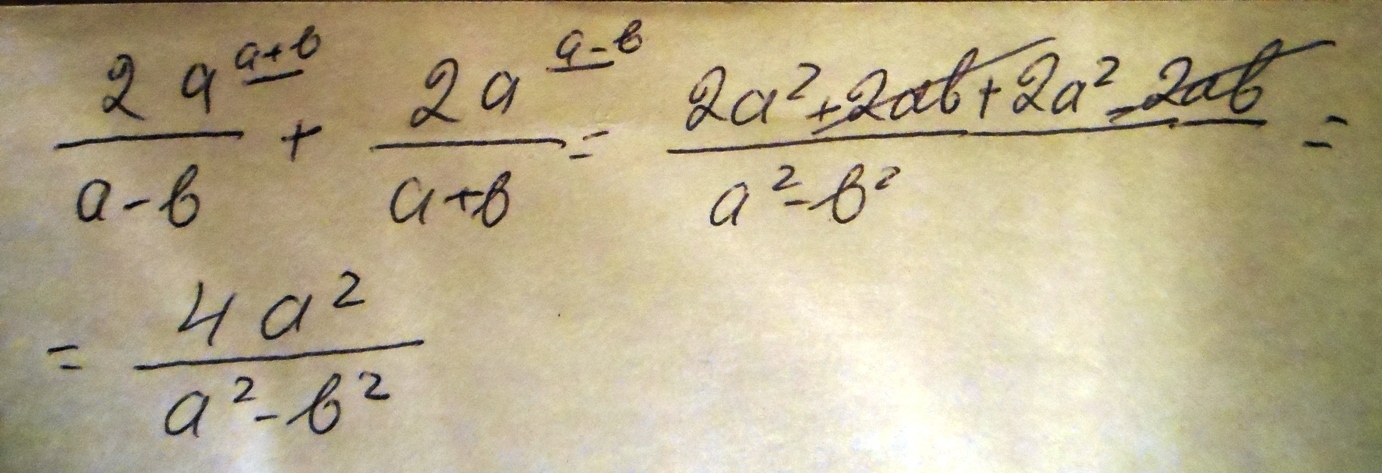 2a^{a+b}/(a-b) + 2a^{a-b}/(a+b) = (2a²+2ab+2a²-2ab)/(a²-b²) =
= 4a²/(a²-b²)